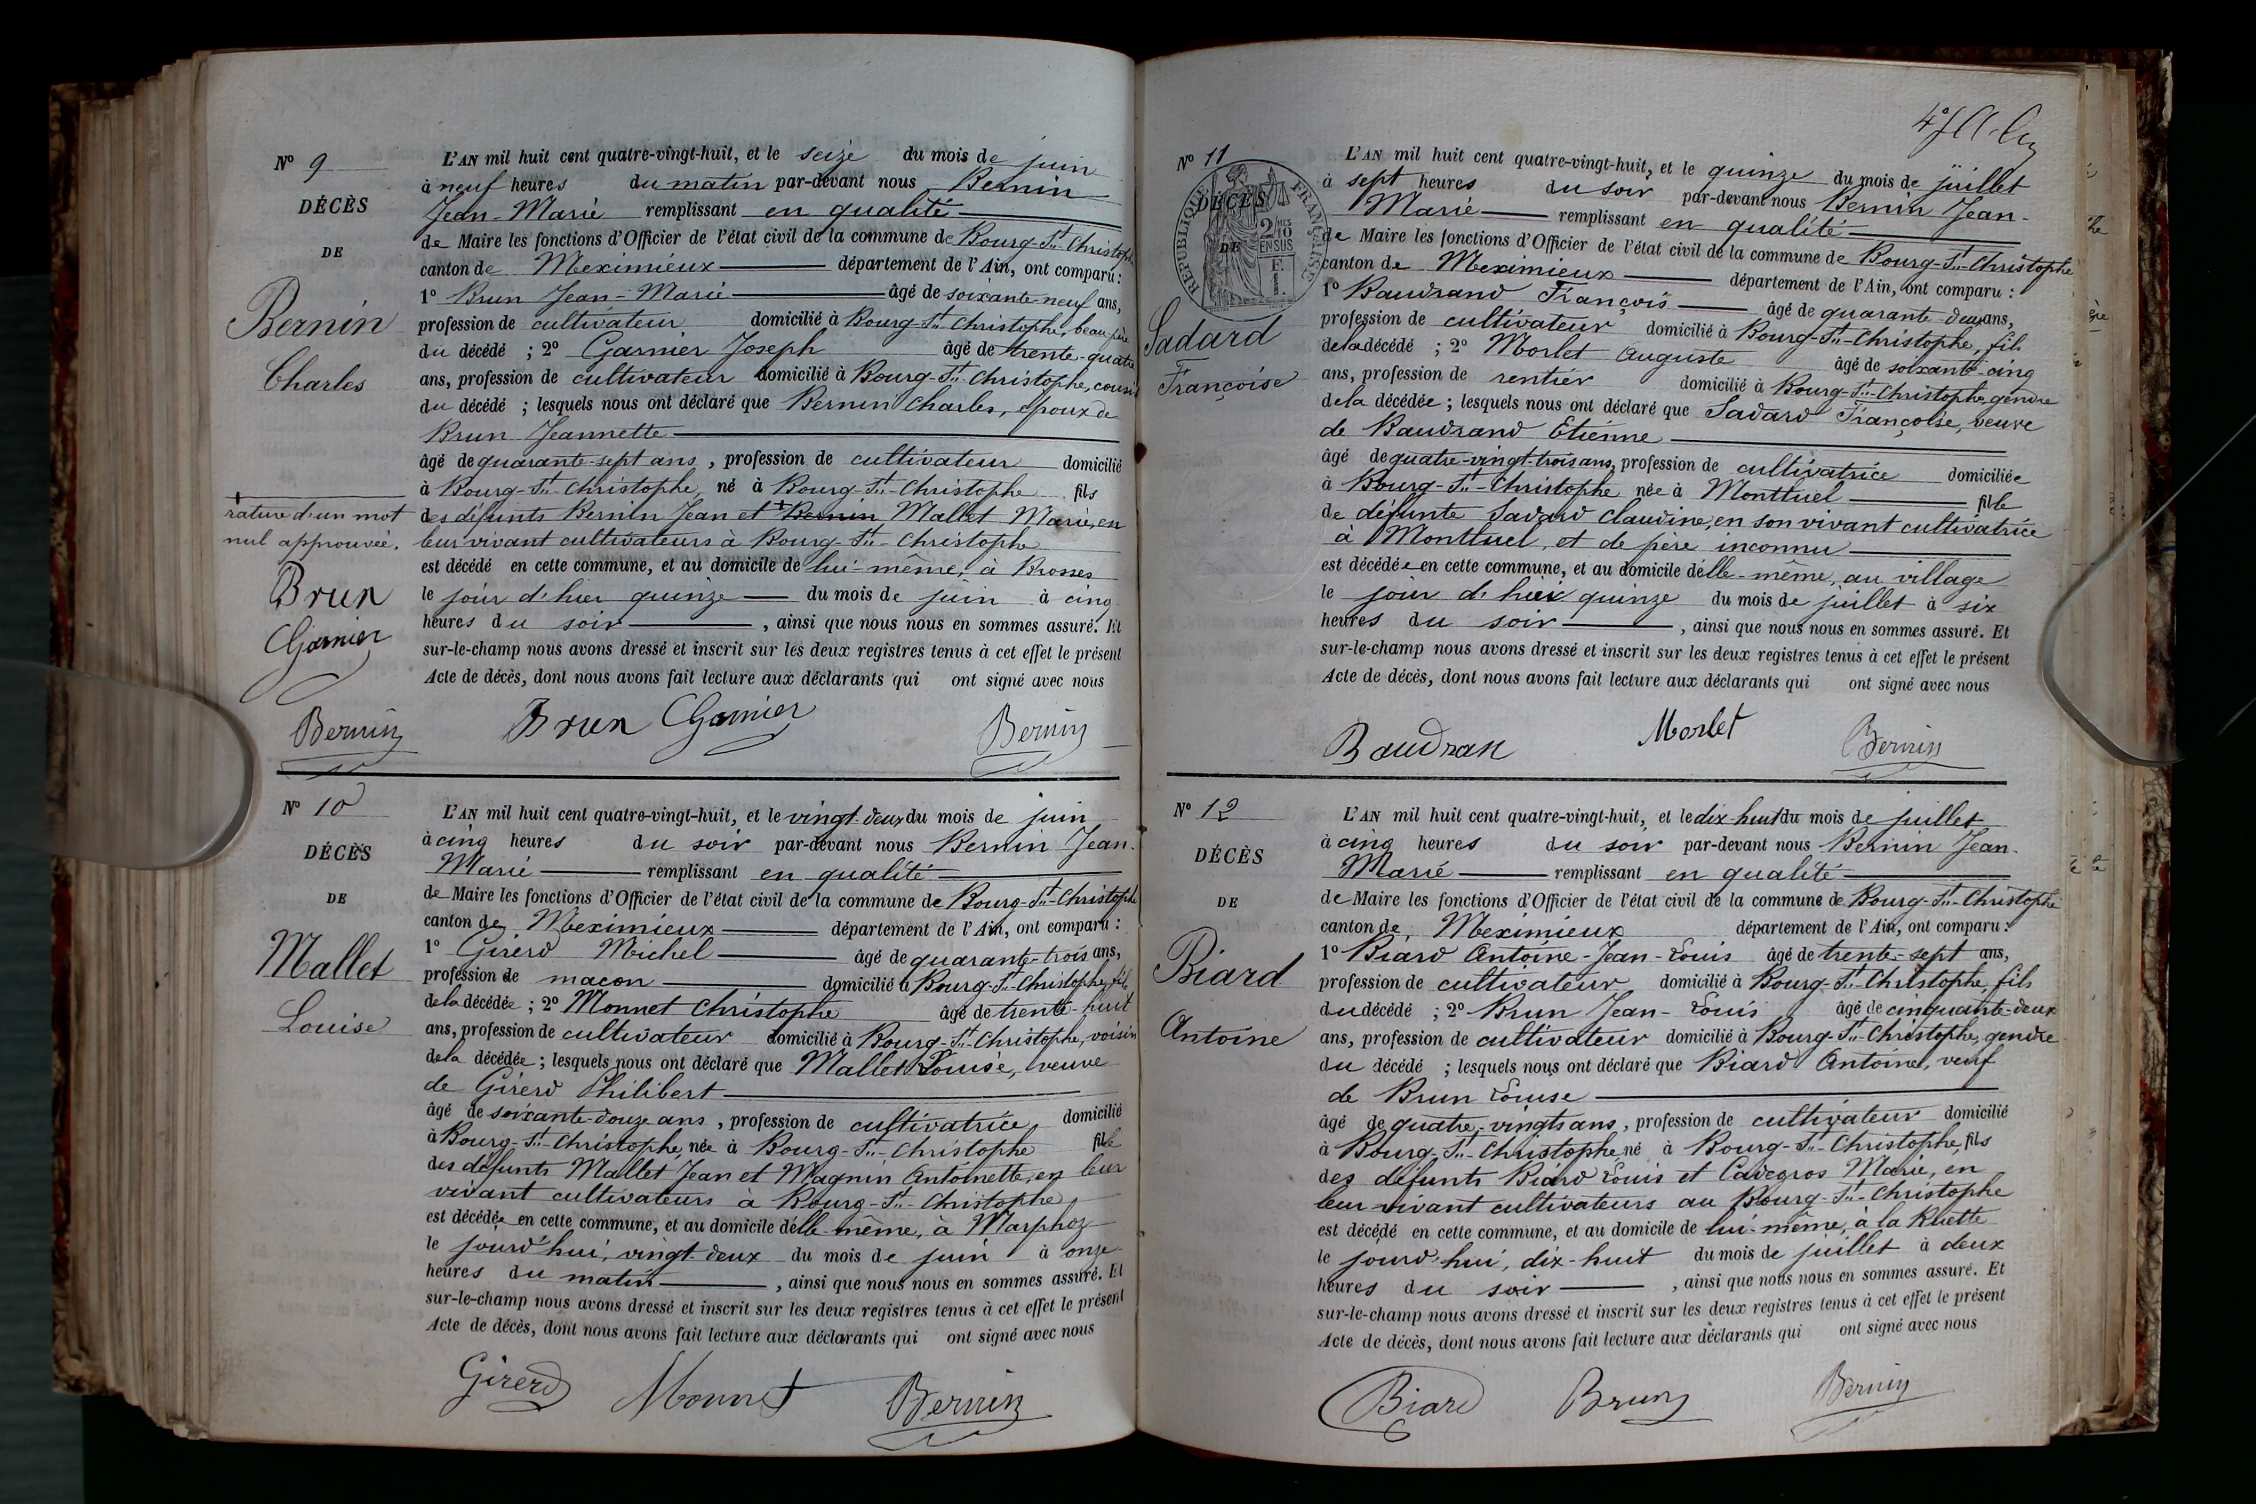 N° 9
DÉCÈS
DE
Bernin
Charles
rature d'un mot
nul approuvée.
Brun
Garnier
Bernin
L'AN mil huit cent quatre-vingt-huit, et le seize du mois de juin
à neuf heures du matin par-devant nous Bernin
Jean-Marie remplissant en qualité
de Maire les fonctions d'Officier de l'état civil de la commune de Bourg-St-Christophe
canton de Meximieux département de l'Ain, ont comparu :
1° Brun Jean-Marie âgé de soixante-neuf ans,
profession de cultivateur domicilié à Bourg-St-Christophe, beau-père
du décédé ; 2° Garnier Joseph âgé de trente-quatre
ans, profession de cultivateur domicilié à Bourg-St-Christophe, cousin
du décédé ; lesquels nous ont déclaré que Bernin Charles, époux de
Brun Jeannette
âgé de quarante-sept ans, profession de cultivateur domicilié
à Bourg-St-Christophe, né à Bourg-St-Christophe fils
des défunts Bernin Jean et Bernin Mallet Marie, en
leur vivant cultivateurs à Bourg-St-Christophe
est décédé en cette commune, et au domicile de lui-même, à Brosses
le jour d'hier quinze du mois de juin à cinq
heures du soir, ainsi que nous nous en sommes assuré. Et
sur-le-champ nous avons dressé et inscrit sur les deux registres tenus à cet effet le présent
Acte de décès, dont nous avons fait lecture aux déclarants qui ont signé avec nous
Brun Garnier Bernin
N° 10
DÉCÈS
DE
Mallet
Louise
L'AN mil huit cent quatre-vingt-huit, et le vingt-deux du mois de juin
à cinq heures du soir par-devant nous Bernin Jean-
Marie remplissant en qualité
de Maire les fonctions d'Officier de l'état civil de la commune de Bourg-St-Christophe
canton de Meximieux département de l'Ain, ont comparu :
1° Girerd Michel âgé de quarante-trois ans,
profession de maçon domicilié à Bourg-St-Christophe, fils
de la décédée ; 2° Monnet Christophe âgé de trente-huit
ans, profession de cultivateur domicilié à Bourg-St-Christophe, voisin
de la décédée ; lesquels nous ont déclaré que Mallet Louise, veuve
de Girerd Philibert
âgé de soixante-douze ans, profession de cultivatrice, domicilié
à Bourg-St-Christophe, née à Bourg-St-Christophe fille
des défunts Mallet Jean et Magnin Antoinette, en leur
vivant cultivateurs à Bourg-St-Christophe,
est décédée en cette commune, et au domicile d'elle-même, à Marphoz
le jourd'hui, vingt-deux du mois de juin à onze
heures du matin, ainsi que nous nous en sommes assuré. Et
sur-le-champ nous avons dressé et inscrit sur les deux registres tenus à cet effet le présent
Acte de décès, dont nous avons fait lecture aux déclarants qui ont signé avec nous
Girerd Monnet Bernin
N° 11
DÉCÈS
DE
RÉPUBLIQUE FRANÇAISE
2/10 EN SUS
Sadard
Françoise
L'AN mil huit cent quatre-vingt-huit, et le quinze du mois de juillet
à sept heures du soir par-devant nous Bernin Jean-
Marie remplissant en qualité
de Maire les fonctions d'Officier de l'état civil de la commune de Bourg-St-Christophe
canton de Meximieux département de l'Ain, ont comparu :
1° Baudrand François âgé de quarante-deux ans,
profession de cultivateur domicilié à Bourg-St-Christophe, fils
de la décédé ; 2° Morlet Auguste âgé de soixante-cinq
ans, profession de rentier domicilié à Bourg-St-Christophe, gendre
de la décédée ; lesquels nous ont déclaré que Sadard Françoise, veuve
de Baudrand Etienne
âgé de quatre-vingt-trois ans, profession de cultivatrice domiciliée
à Bourg-St-Christophe née à Montluel fille
de défunte Sadard Claudine, en son vivant cultivatrice
à Montluel, et de père inconnu
est décédée en cette commune, et au domicile d'elle-même, au village
le jour d'hier quinze du mois de juillet à six
heures du soir, ainsi que nous nous en sommes assuré. Et
sur-le-champ nous avons dressé et inscrit sur les deux registres tenus à cet effet le présent
Acte de décès, dont nous avons fait lecture aux déclarants qui ont signé avec nous
Baudran Morlet Bernin
N° 12
DÉCÈS
DE
Biard
Antoine
L'AN mil huit cent quatre-vingt-huit, et le dix-huit du mois de juillet
à cinq heures du soir par-devant nous Bernin Jean-
Marie remplissant en qualité
de Maire les fonctions d'Officier de l'état civil de la commune de Bourg-St-Christophe
canton de Meximieux département de l'Ain, ont comparu :
1° Biard Antoine-Jean-Louis âgé de trente-sept ans,
profession de cultivateur domicilié à Bourg-St-Christophe, fils
du décédé ; 2° Brun Jean-Louis âgé de cinquante-deux
ans, profession de cultivateur domicilié à Bourg-St-Christophe, gendre
du décédé ; lesquels nous ont déclaré que Biard Antoine, veuf
de Brun Louise
âgé de quatre-vingts ans, profession de cultivateur domicilié
à Bourg-St-Christophe né à Bourg-St-Christophe, fils
des défunts Biard Louis et Cavegros Marie, en
leur vivant cultivateurs au Bourg-St-Christophe
est décédé en cette commune, et au domicile de lui-même, à la Ruette
le jourd'hui, dix-huit du mois de juillet à deux
heures du soir, ainsi que nous nous en sommes assuré. Et
sur-le-champ nous avons dressé et inscrit sur les deux registres tenus à cet effet le présent
Acte de décès, dont nous avons fait lecture aux déclarants qui ont signé avec nous
Biard Brun Bernin